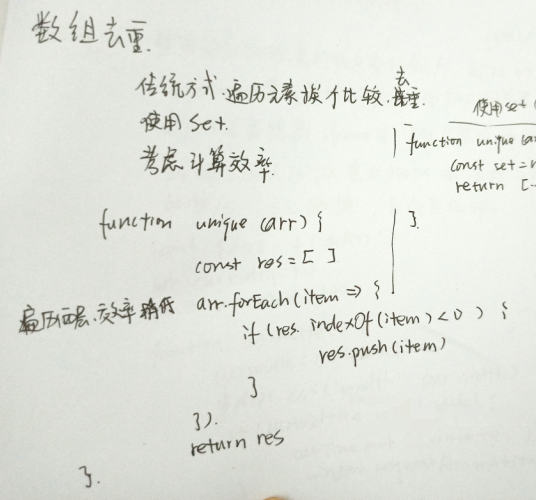 数组去重.
传统方式 遍历元素挨个比较,去重.
使用 Set.
考虑计算效率.
function unique (arr) {
const res = [ ]
遍历两层,效率稍低
arr.forEach(item => {
if (res. indexOf(item) < 0 ) {
res.push(item)
}
}).
return res
}.
使用 set (
function unique (ar
const set = n
return [
}.